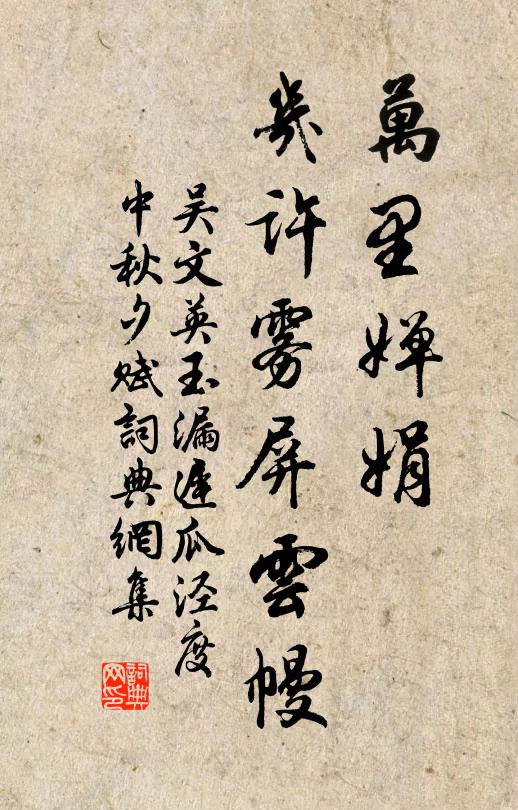 萬里嬋娟
幾許霧屏雲幔
吴文英玉漏遲瓜泾度
中秋夕賦詞典網集
詞典网印